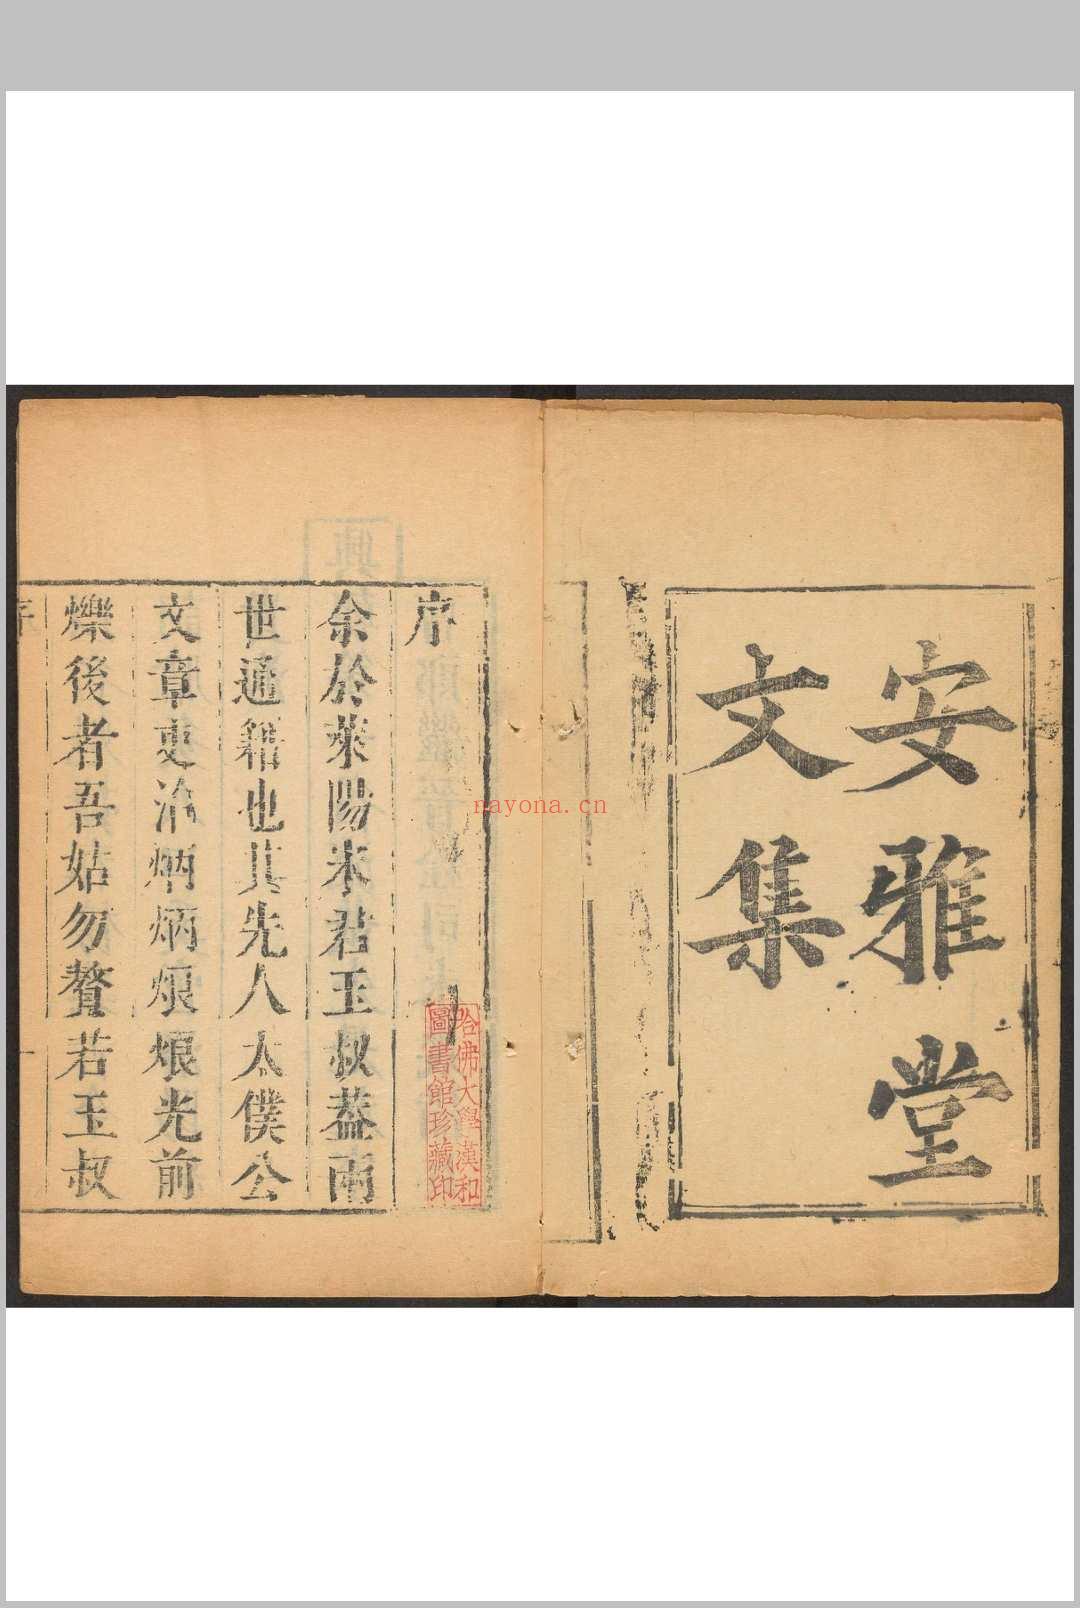 安雅堂
文集
序
余於萊陽宋君玉叔葢兩
世通籍也其先人太僕公
文章吏治炳炳烺烺光前
爍後者吾姑勿贅若玉叔
序
哈佛大學漢和
圖書館珍藏印
nayona.cn